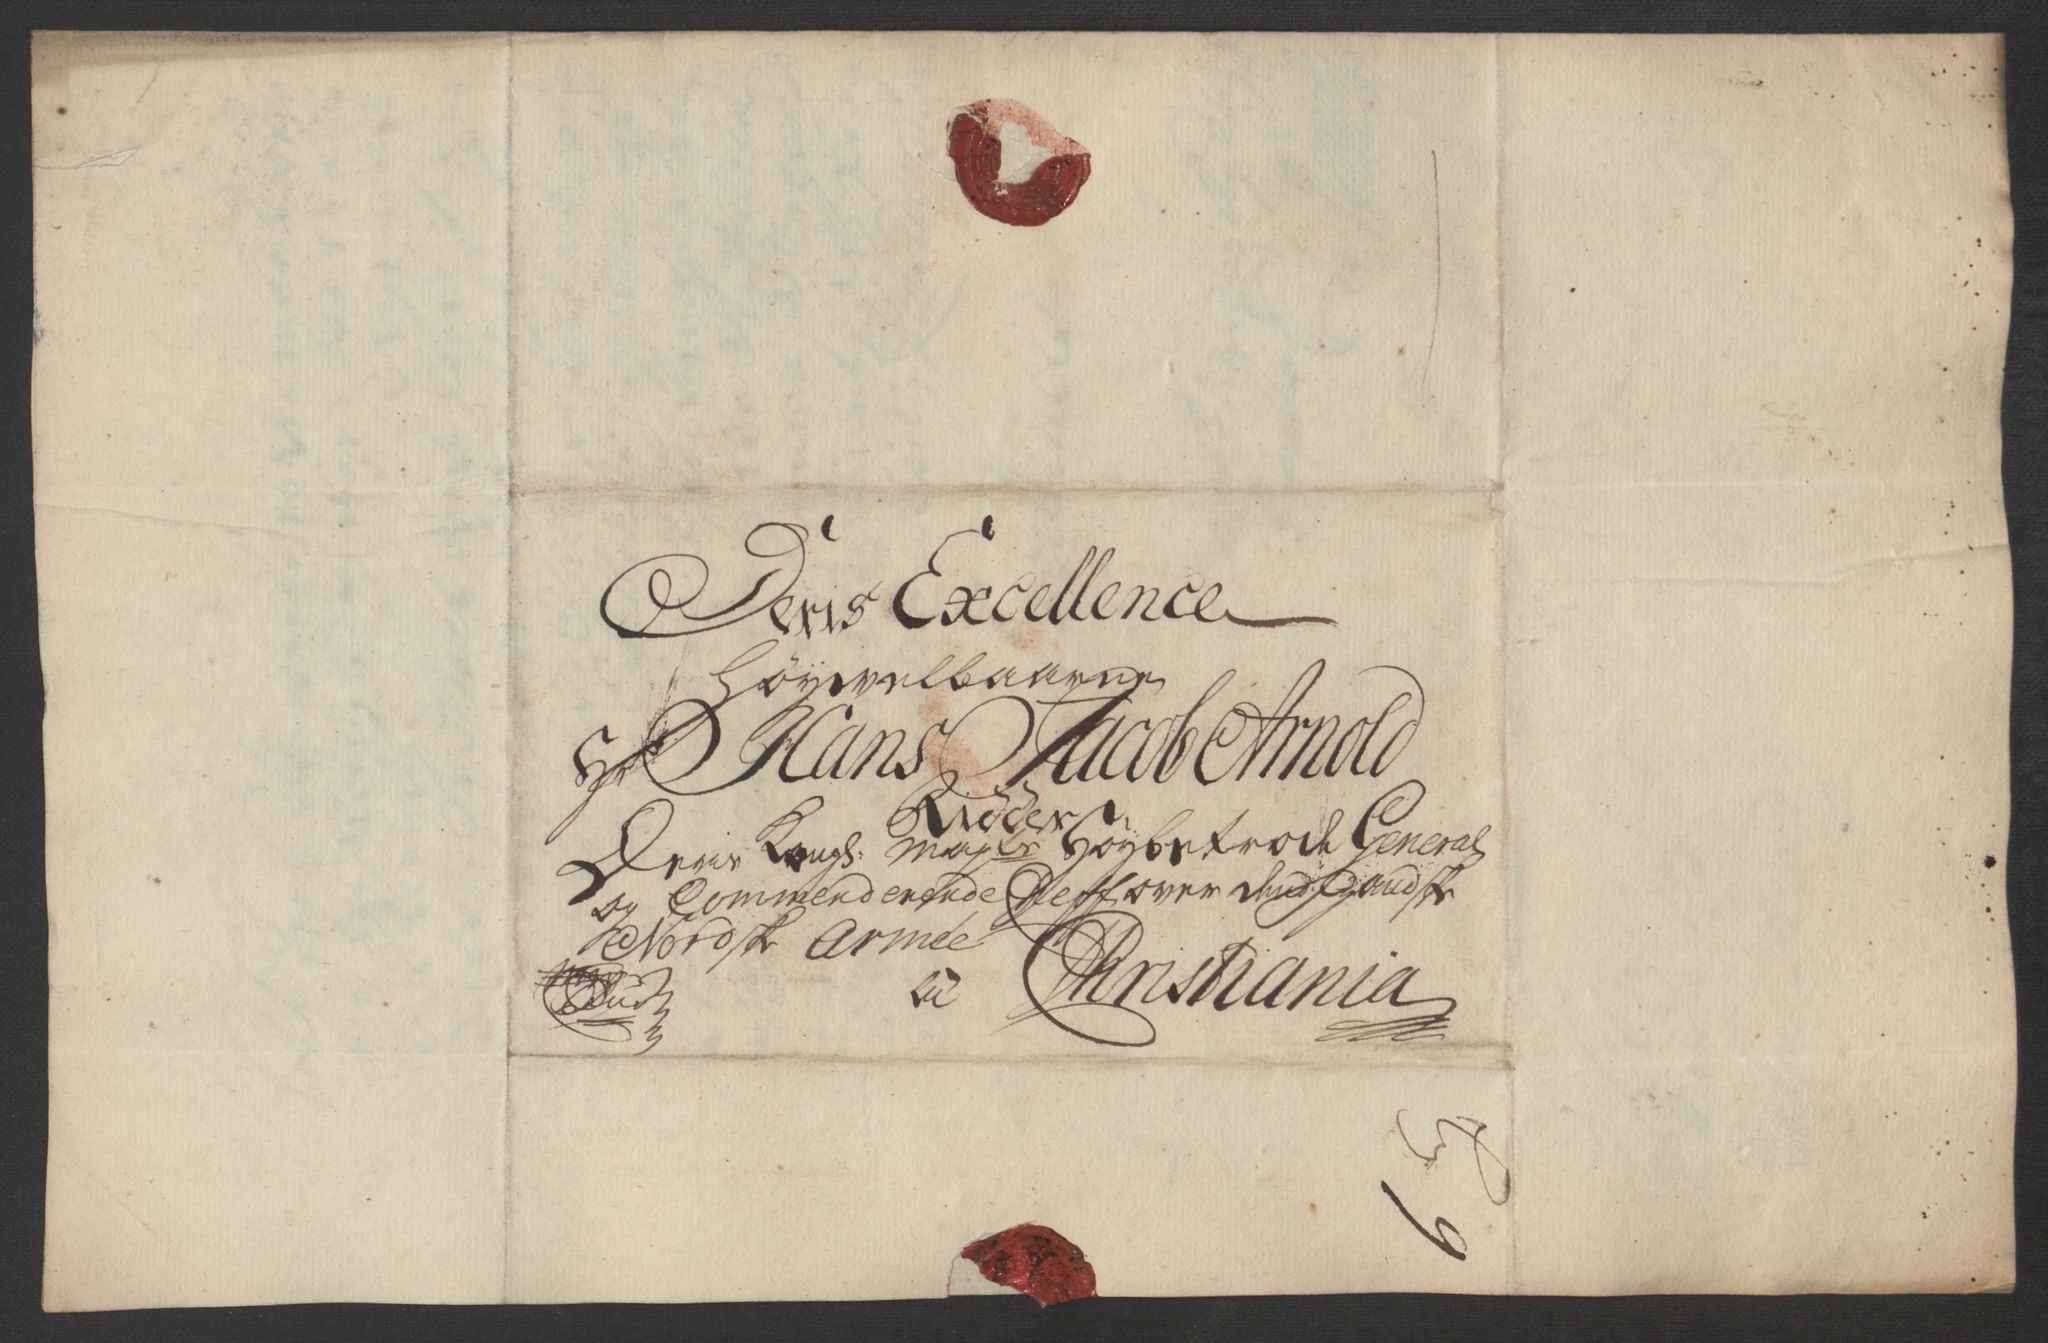 Deris Excellence
Höyvelbaarne
Hr Hans Jacob Arnold
Ridder
Deris Kongl: Mayts Höybetrode General
og Commenderende Cheff over dend gandske
Nordske Armée
a Christiania
9